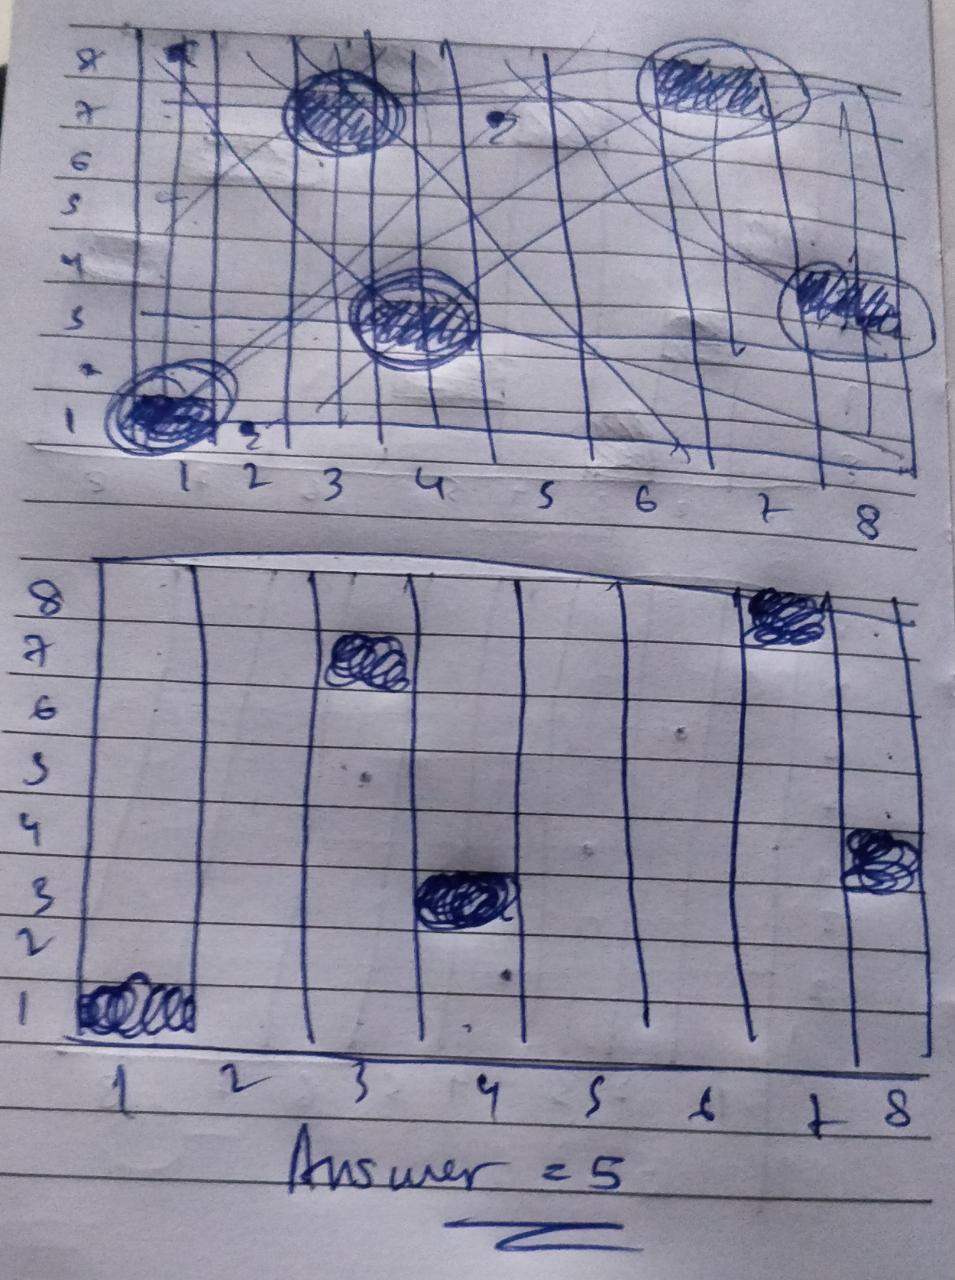 8
7
6
5
4
3
1
1 2 3 4 5 6 7 8
8
7
6
5
4
3
2
1
1 2 3 4 5 6 7 8
Answer = 5